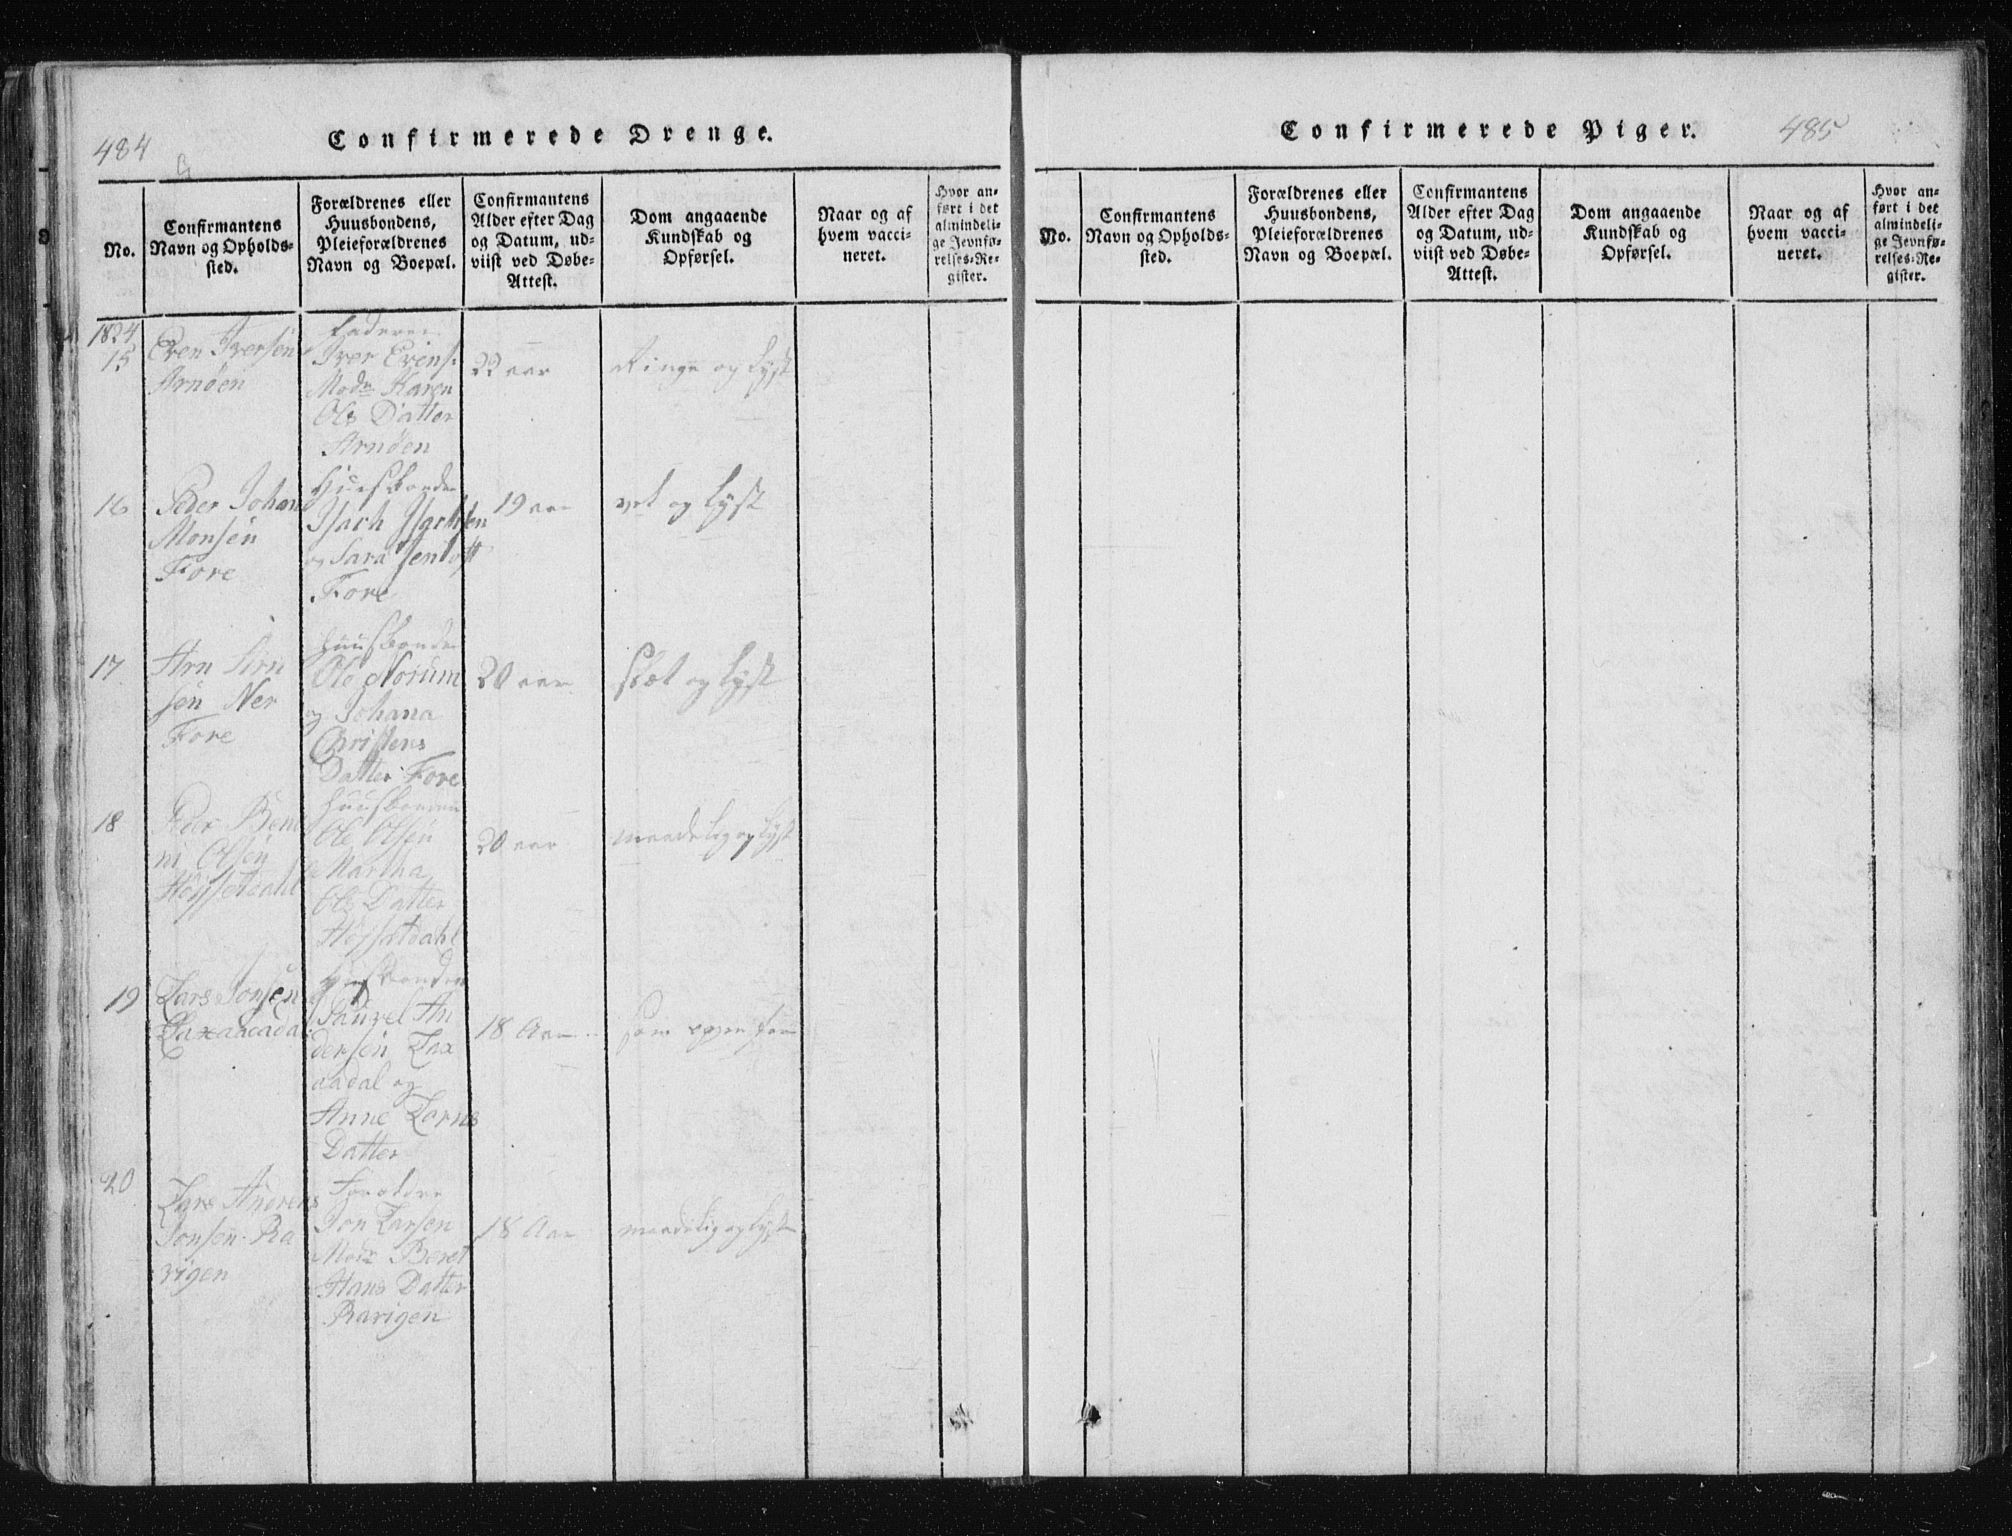 484
Confirmerede Drenge.
No.
Confirmantens
Navn og Opholds-
sted.
Forældrenes eller
Huusbondens,
Pleieforældrenes
Navn og Boepæl.
Confirmantens
Alder efter Dag
og Datum, ud-
viist ved Døbe-
Attest.
Dom angaaende
Kundskab og
Opførsel.
Naar og af
hvem vacci-
neret.
Hvor an-
ført i det
almindeli-
ge Jevnfø-
relses-Re-
gister.
1824
15
Even Iversen
Arnöen
Faderen
Iver Evens.
Modr Karen
Ols Datter
Arnöen
22 aar
Ringe og lyst
16
Peder Johan
Monsen
Fore
Huusbonden
Isach Isachsen
og Sara Jentoft
Fore
19 aar
vel og lyst
17
Arn Arn
sen Ner
Fore
Huusbonden
Ole Norum
og Johana
Christens
Datter Fore
20 aar
slet og lyst
18
Peder Beni
ni Olsen
Höyssetdahl
Huusbonden
Ole Olsen
Martha
Ols Datter
Höyssetdahl
20 aar
maadelig og lyst
19
Lars Jonsen
Huusbonden
Paurel An
dersen Lax
aadal og
Anne Lorns
Datter
18 Aar
som oven for
20
Lars Andreas
Jonsen Ra
rigen
Jon Larsen
Modr Beret
Hans Datter
Rarigen
18 Aar
maadelig og lyst
Confirmerede Piger.
485
No.
Confirmantens
Navn og Opholds-
sted.
Forældrenes eller
Huusbondens,
Pleieforældrenes
Navn og Boepæl.
Confirmantens
Alder efter Dag
og Datum, ud-
viist ved Døbe-
Attest.
Dom angaaende
Kundskab og
Opførsel.
Naar og af
hvem vacci-
neret.
Hvor an-
ført i det
almindeli-
ge Jevnfø-
relses-Re-
gister.